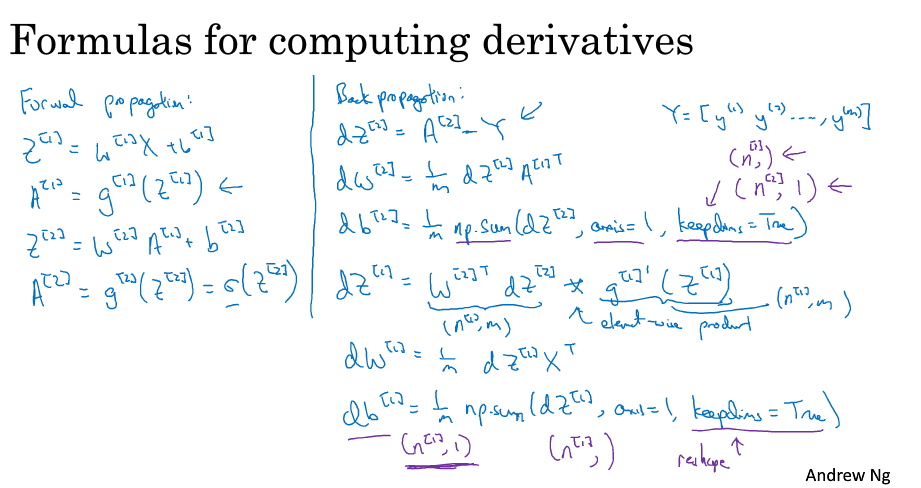 Formulas for computing derivatives
Forward propagation:
Z^[1] = W^[1] X + b^[1]
A^[1] = g^[1](Z^[1]) ←
Z^[2] = W^[2] A^[1] + b^[2]
A^[2] = g^[2](Z^[2]) = σ(Z^[2])
Back propagation:
dZ^[2] = A^[2] - Y ↙
Y = [y^(1) y^(2) ..., y^(m)]
dW^[2] = 1/m dZ^[2] A^[1]T
(n^[1],) ←
↙ (n^[2], 1) ←
db^[2] = 1/m np.sum(dZ^[2], axis=1, keepdims=True)
dZ^[1] = W^[2]T dZ^[2] * g^[1]'(Z^[1])
(n^[1], m)
↖ element-wise product
(n^[1], m)
dW^[1] = 1/m dZ^[1] X^T
db^[1] = 1/m np.sum(dZ^[1], axis=1, keepdims=True)
(n^[1], 1) (n^[1],) reshape ↑
Andrew Ng